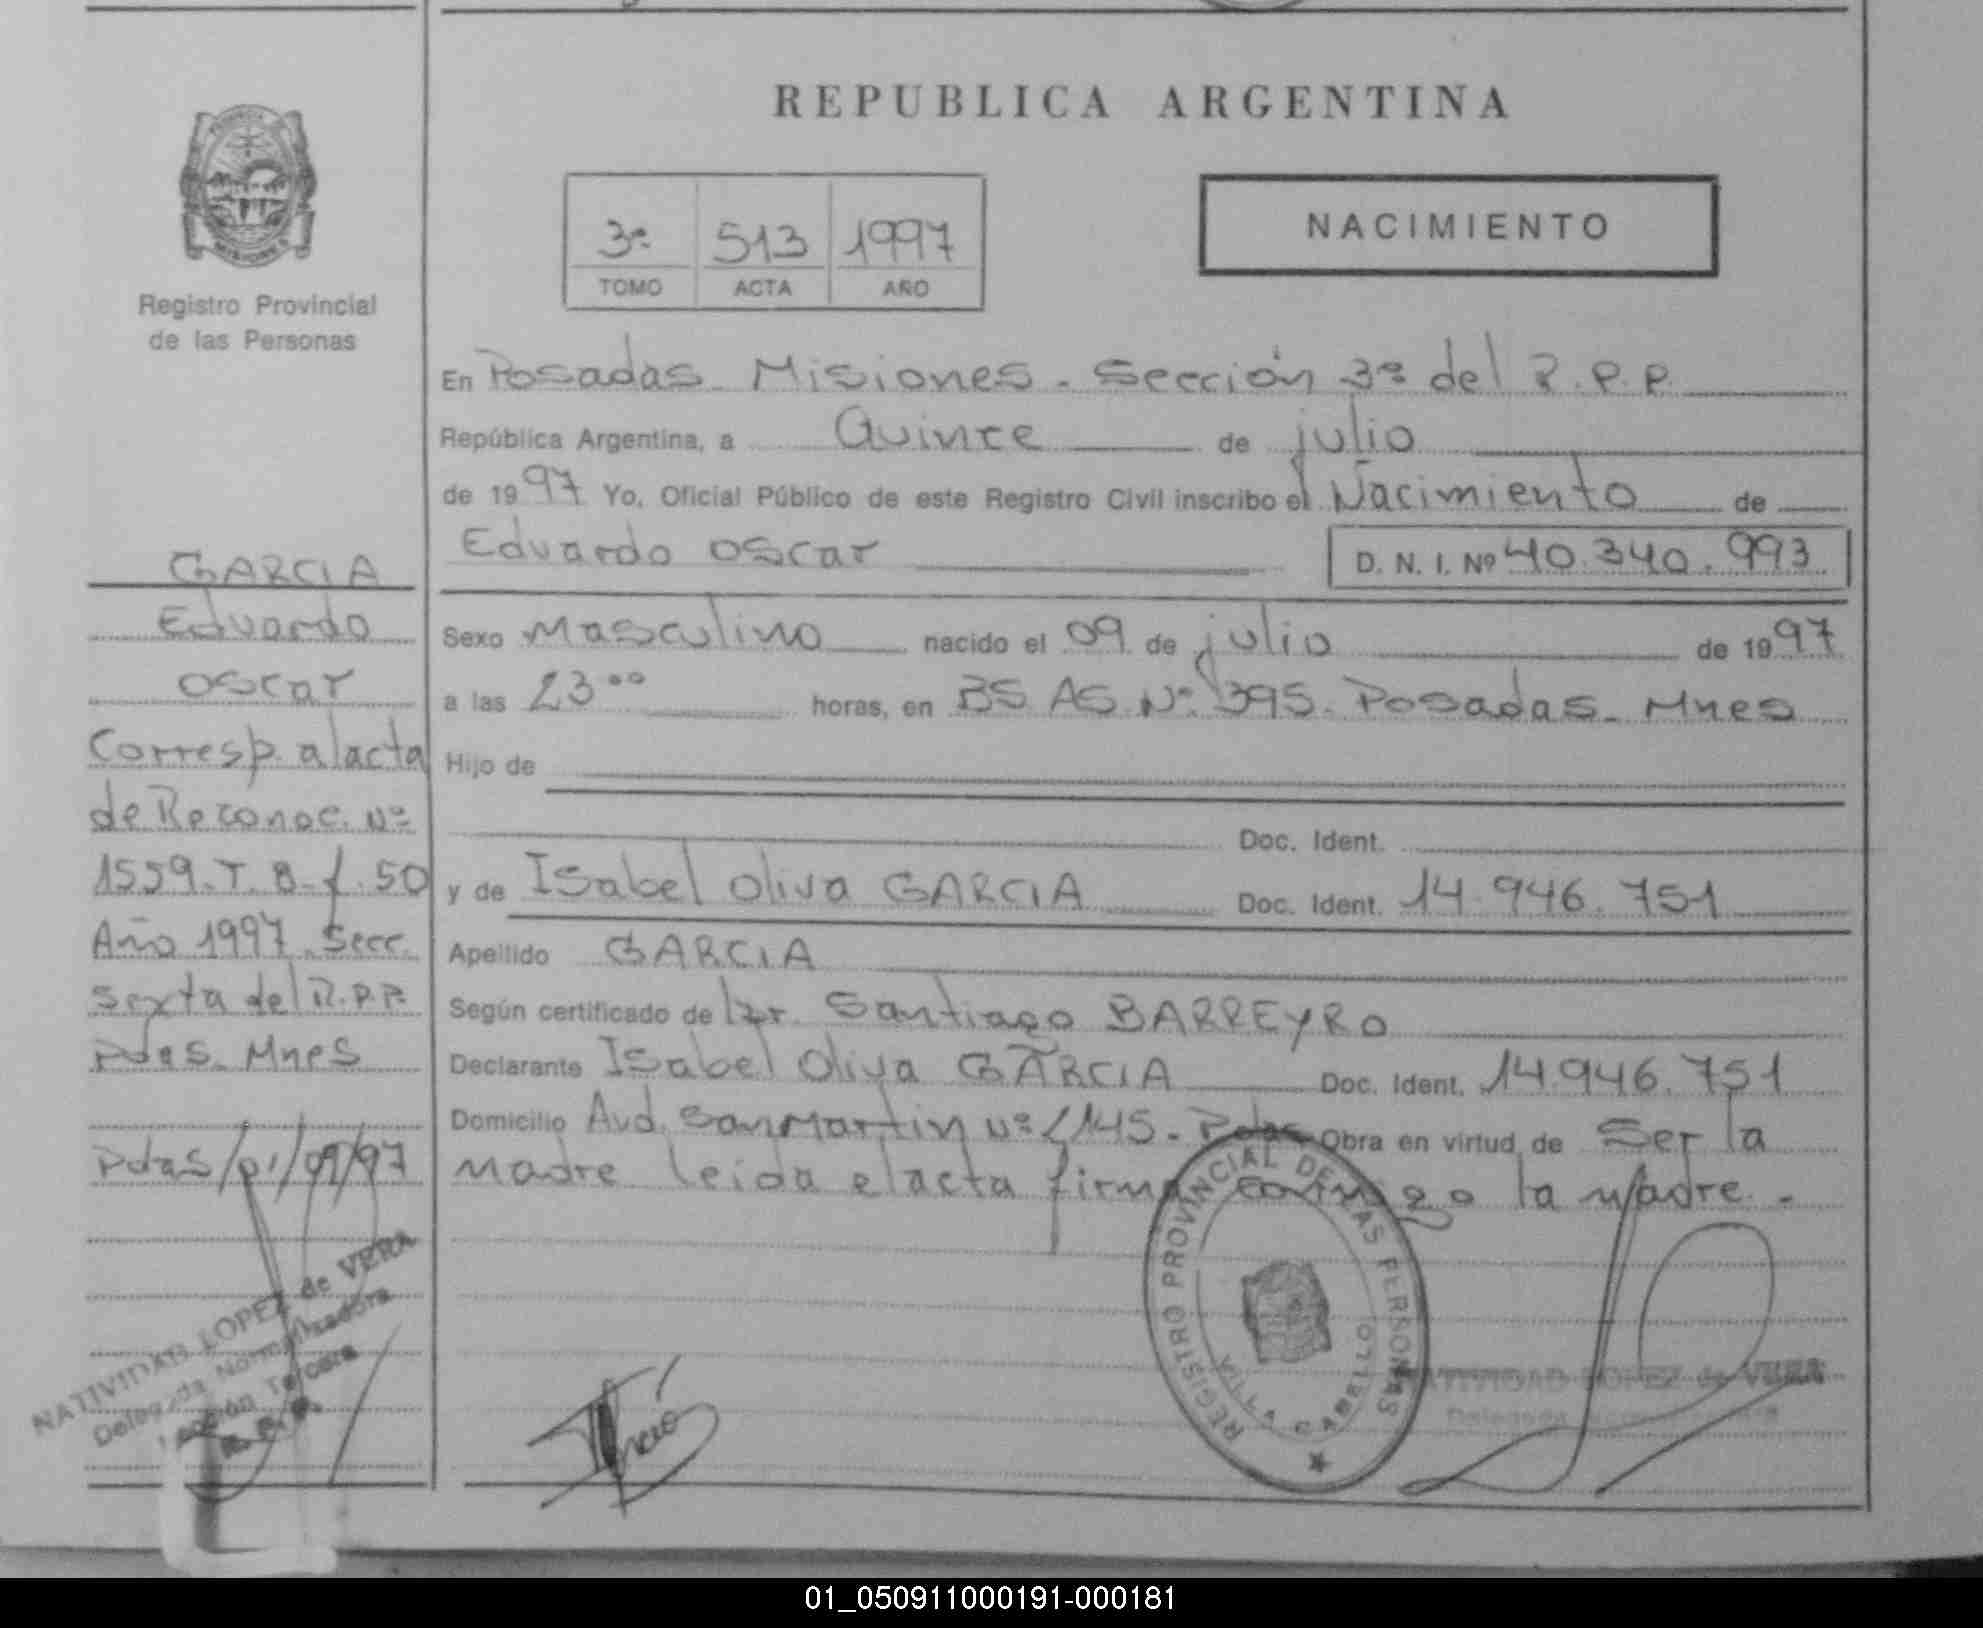 REPUBLICA ARGENTINA
PROVINCIA
MISIONES
Registro Provincial
de las Personas
3º 513 1997
TOMO ACTA AÑO
NACIMIENTO
En Posadas - Misiones - Sección 3º del R.P.P.
República Argentina, a Quince de julio
de 1997 Yo, Oficial Público de este Registro Civil inscribo el Nacimiento de
Eduardo Oscar D. N. I. Nº 40.340.993
Sexo Masculino nacido el 09 de julio de 1997
a las 23ºº horas, en BS AS Nº 395. Posadas - Mnes
Hijo de
Doc. Ident.
y de Isabel Oliva GARCIA Doc. Ident. 14.946.751
Apellido GARCIA
Según certificado de Dr. Santiago BARREYRO
Declarante Isabel Oliva GARCIA Doc. Ident. 14.946.751
Domicilio Avd. San Martin Nº 2145 - Pdas Obra en virtud de Ser la
Madre leida el acta firma conmigo la Madre -
GARCIA
Eduardo
Oscar
Corresp. al acta
de Reconoc. Nº
1559. T. 8 - f. 50
Año 1997. Secc.
Sexta del R.P.P.
Pdas. Mnes
Pdas/01/09/97
NATIVIDAD LOPEZ de VERA
Delegada Normalizadora
Sección Tercera
R.P.P.
REGISTRO PROVINCIAL DE LAS PERSONAS
VILLA CABELLO
NATIVIDAD LOPEZ de VERA
Delegada Normalizadora
01_050911000191-000181